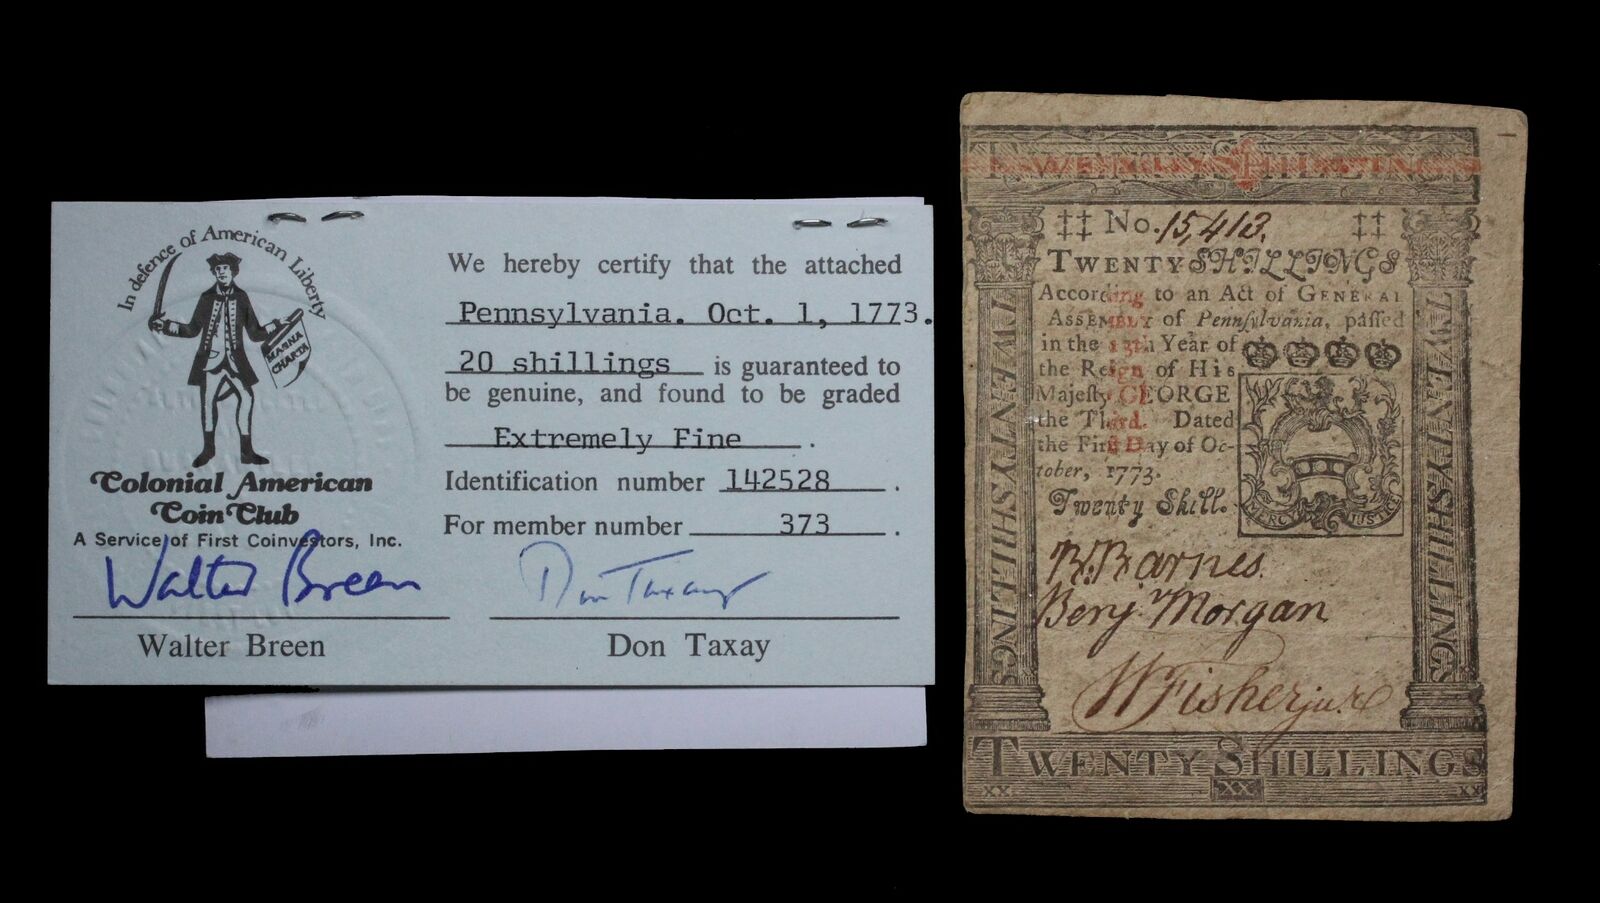 In defence of American Liberty
MAGNA
CHARTA
Colonial American
Coin Club
A Service of First Coinvestors, Inc.
We hereby certify that the attached
Pennsylvania. Oct. 1, 1773.
20 shillings is guaranteed to
be genuine, and found to be graded
Extremely Fine .
Identification number 142528 .
For member number 373 .
Walter Breen
Don Taxay
Walter Breen
Don Taxay
TWENTY SHILLINGS
No. 15,413.
TWENTY SHILLINGS
According to an Act of GENERAL
ASSEMBLY of Pennſylvania, paſſed
in the 13th Year of
the Reign of His
Majeſty GEORGE
the Third. Dated
the Firſt Day of Oc-
tober, 1773.
Twenty Shill.
MERCY JUSTICE
B. Barnes.
Benj. Morgan
W Fisher jun.
TWENTY SHILLINGS
TWENTY SHILLINGS
TWENTY SHILLINGS
XX XX XX